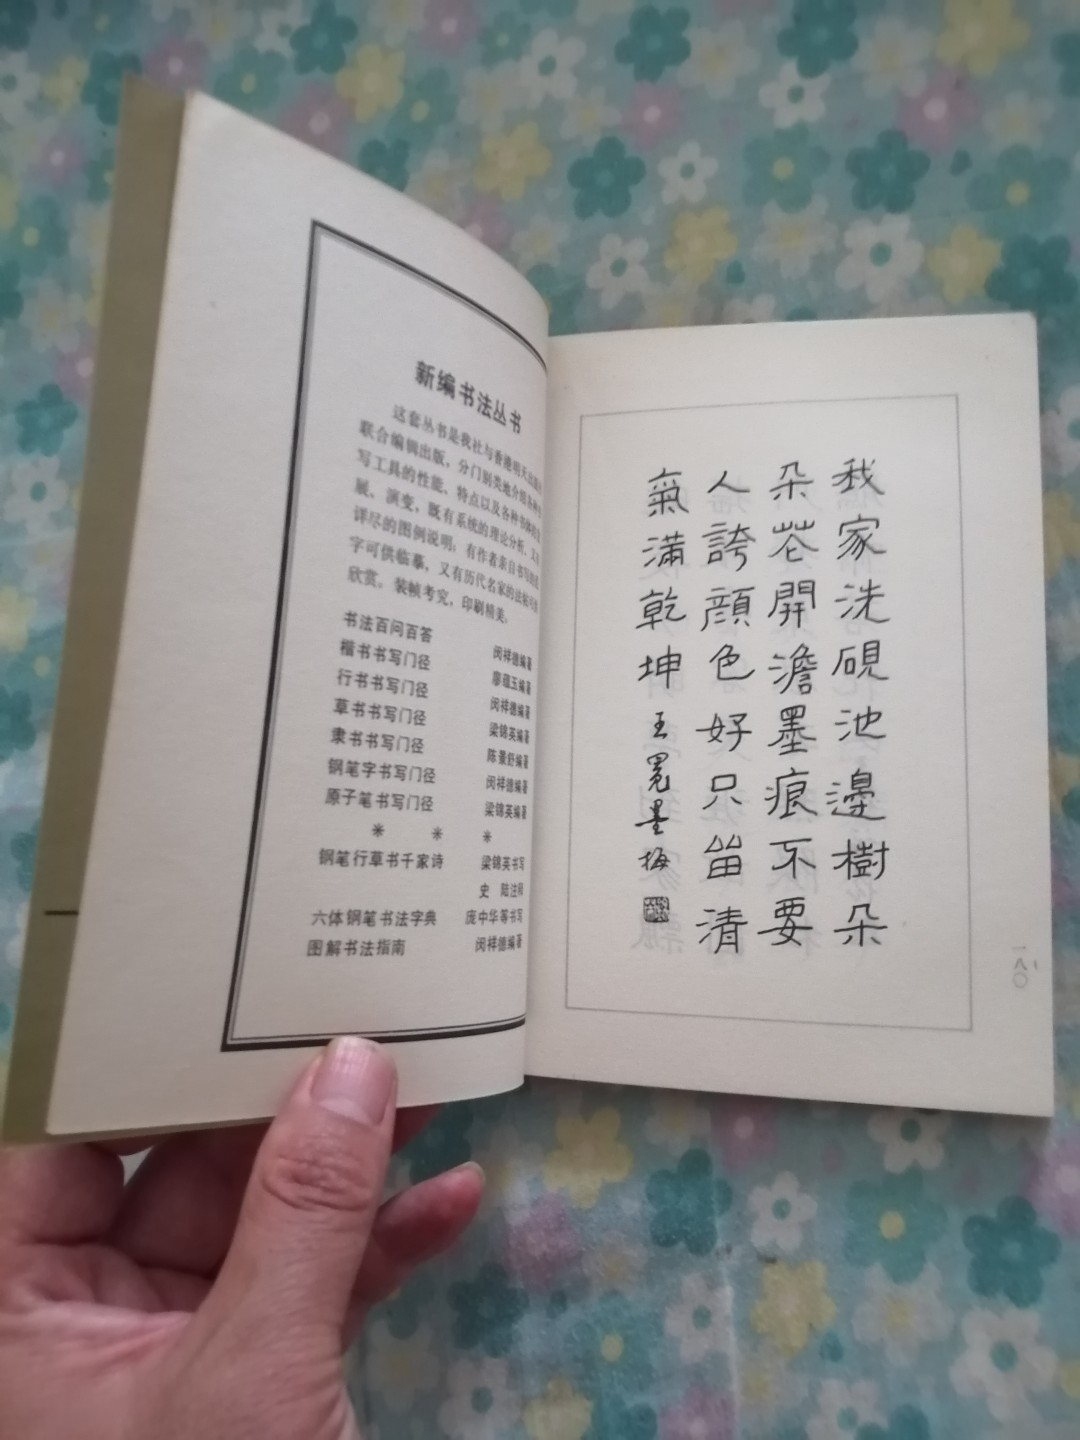 新编书法丛书
这套丛书是我社与香港明天出版社
联合编辑出版，分门别类地介绍各种书
写工具的性能、特点以及各种书体的发
展、演变，既有系统的理论分析，又有
详尽的图例说明；有作者亲自书写的范
字可供临摹，又有历代名家的法帖可资
欣赏。装帧考究，印刷精美。
书法百问百答 闵祥德编著
楷书书写门径 廖蕴玉编著
行书书写门径 闵祥德编著
草书书写门径 梁锦英编著
隶书书写门径 陈景舒编著
钢笔字书写门径 闵祥德编著
原子笔书写门径 梁锦英编著
* * *
钢笔行草书千家诗 梁锦英书写
史 陆注释
六体钢笔书法字典 庞中华等书写
图解书法指南 闵祥德编著
我家洗硯池邊樹朵
朵芲開澹墨痕不要
人誇顔色好只留清
氣滿乾坤 王冕墨梅
一八〇